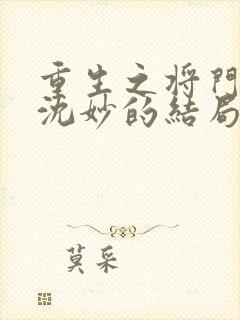 重生之将門
沈妙的結局
莫采